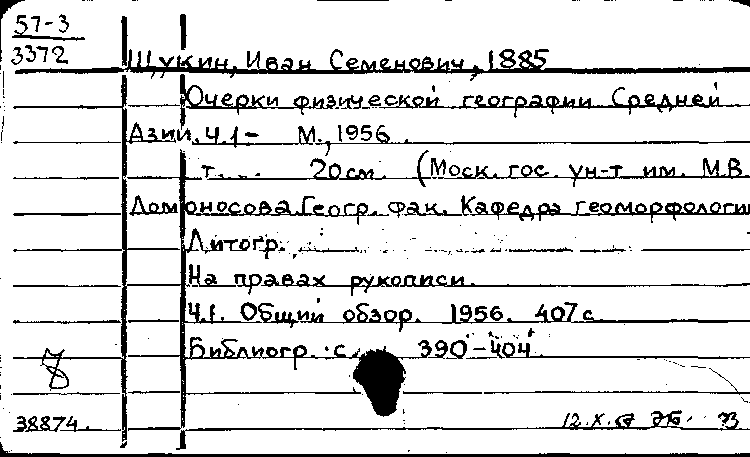 57-3
3372
Щукин, Иван Семенович, 1885
Очерки физической географии Средней
Азии. Ч.1- М., 1956.
т.... 20см. (Моск. гос. ун-т им. М.В.
Ломоносова. Геогр. фак. Кафедра геоморфологии
Литогр.
На правах рукописи.
Ч.1. Общий обзор. 1956. 407 с.
Библиогр. с. 390-404.
8
38874.
12.X.